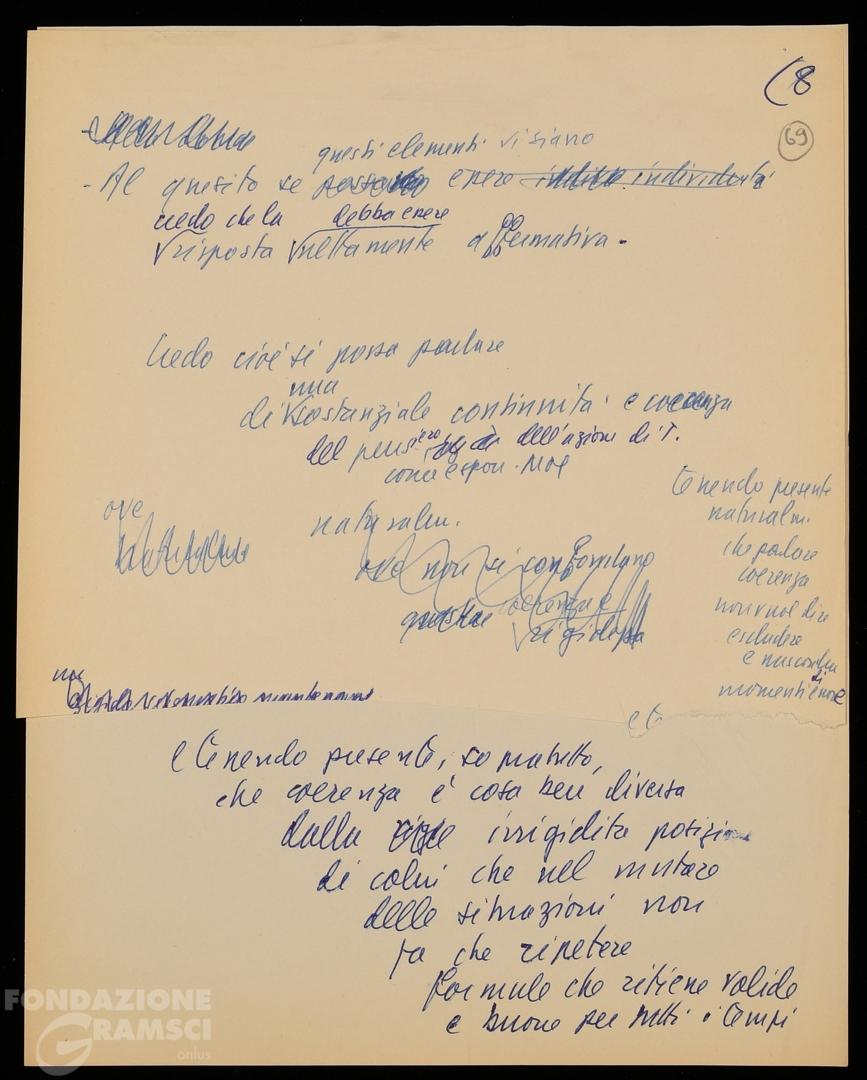 (8
69
questi elementi vi siano
- Al quesito se essere
credo che la debba essere
risposta nettamente affermativa.
Credo cioè si possa parlare
una
di sostanziale continuità e coerenza
del pensiero dell'azione di T.
Tenendo presente
naturalm.
che parlare
coerenza
non vuol dire
escludere
e nascondere
momenti
ove
naturalm.
ove non si confondano
coerenza e
rigidezza
e te
e tenendo presente, soprattutto,
che coerenza è cosa ben diversa
dalla irrigidita posizione
di colui che nel mutare
delle situazioni non
fa che ripetere
formule che ritiene valide
e buone per tutti i tempi
FONDAZIONE
GRAMSCI
onlus